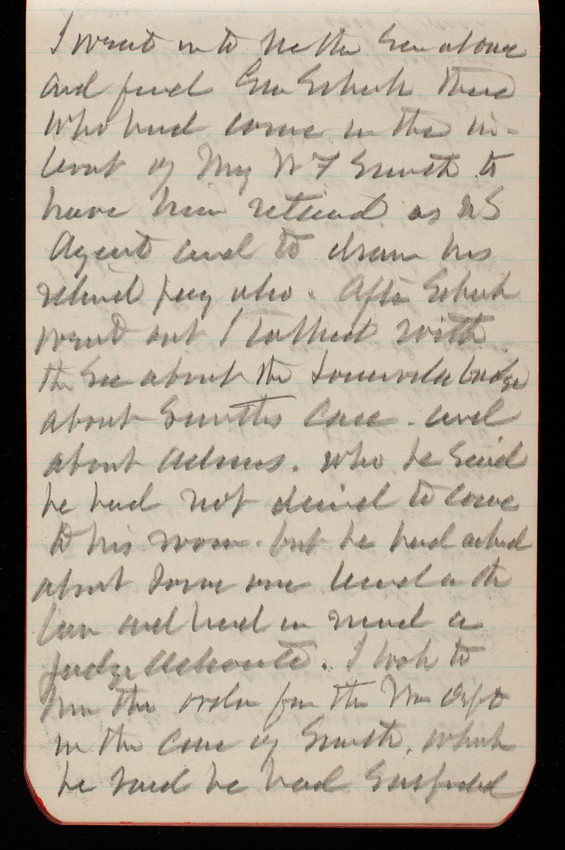 I went in to see the Sec alone
and found Gen Schenck there
who had come in the in-
terest of My W F Smith to
have him retained as US
Agent and to draw his
retired pay also. After Schenck
went out I talked with
the Sec about the Louisville bridge
about Smiths case. and
about Adams. who he said
he had not desired to come
to his room. but he had asked
about some one learned in the
law and had in mind a
Judge
I took to
him the order from the War Dept
in the case of Smith, which
he said he had suspended